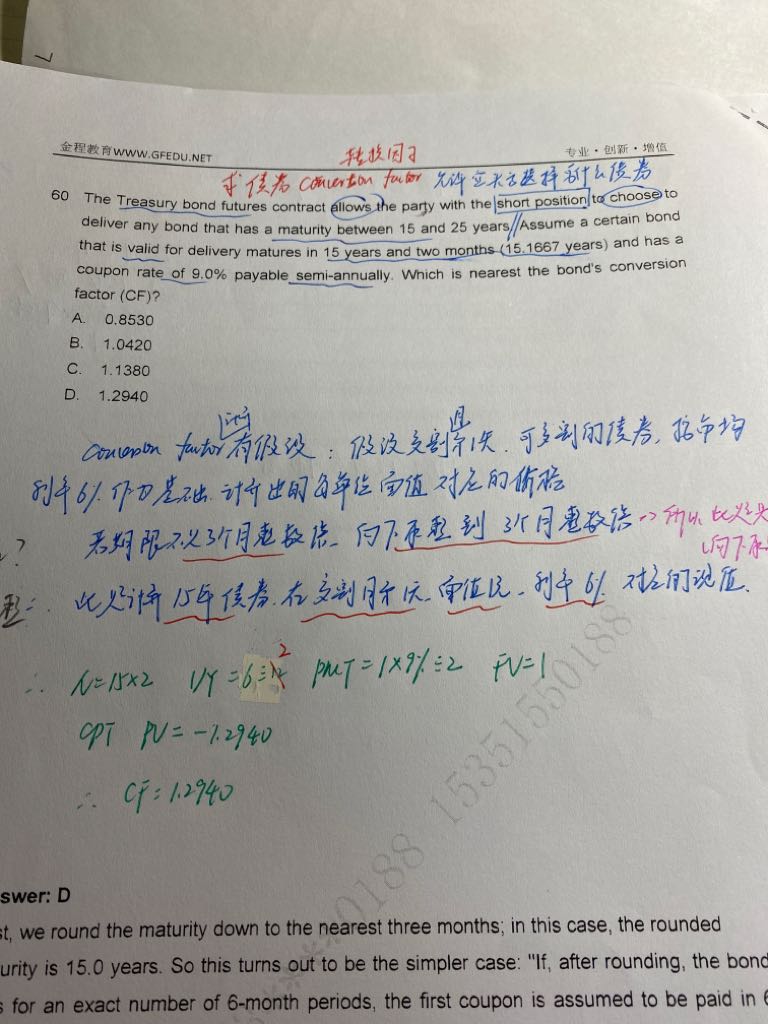 金程教育WWW.GFEDU.NET
转换因子
专业·创新·增值
求债券 conversion factor 允许空头方选择新什么债券
60 The Treasury bond futures contract allows the party with the short position to choose to
deliver any bond that has a maturity between 15 and 25 years//Assume a certain bond
that is valid for delivery matures in 15 years and two months (15.1667 years) and has a
coupon rate of 9.0% payable semi-annually. Which is nearest the bond's conversion
factor (CF)?
A. 0.8530
B. 1.0420
C. 1.1380
D. 1.2940
conversion factor 有假设：假设交割 第1天，可交割的债券，按市场
月
利率6%作为基础，计算出的每单位面值对应的价格
若期限不必3个月整数倍，向下取整到3个月整数倍 -> 所以
向下
此处计算15年债券，在交割月第1天，面值1元，利率6%对应的现值.
∴ N=15×2 I/Y=6÷2 PMT=1×9%÷2 FV=1
CPT PV=-1.2940
∴ CF=1.2940
0188 15351550188
swer: D
st, we round the maturity down to the nearest three months; in this case, the rounded
urity is 15.0 years. So this turns out to be the simpler case: "If, after rounding, the bond
s for an exact number of 6-month periods, the first coupon is assumed to be paid in 6